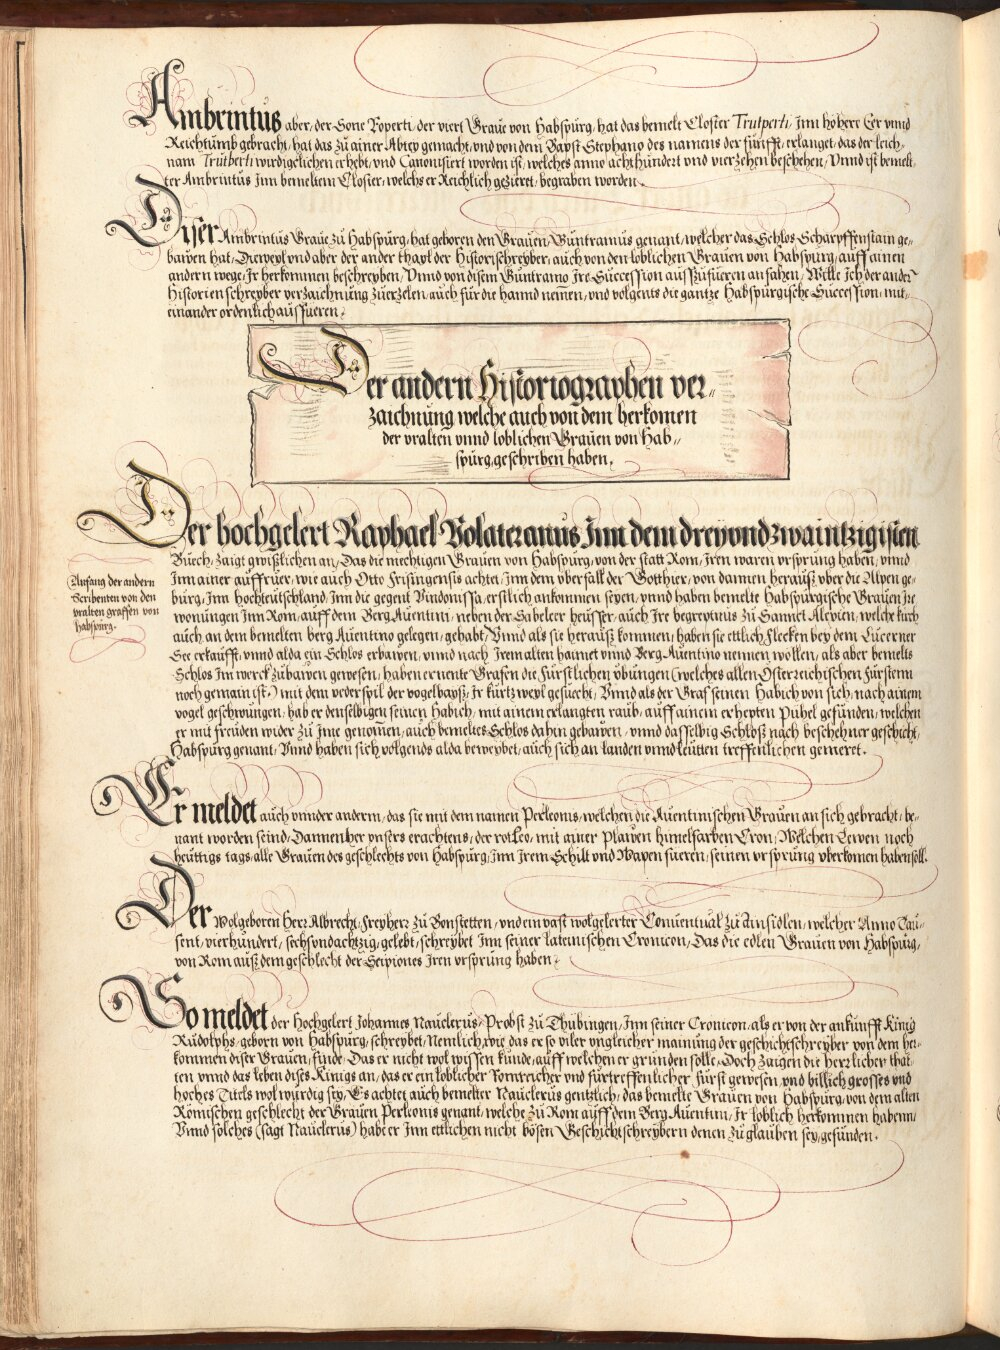 Ambrintus aber, der Sone Roperti, der viert Graue von Habspurg, hat das bemelt Closter Trutperti, Inn höhere Eer vnnd
Reichtumb gebracht, hat das zu ainer Abtey gemacht, vnd von dem Bapst Stephano des namens der funfft, erlanget, das der leich,,
nam Trutberti wirdigelichen erhebt, vnd Canonisiert worden ist, welches anno achthundert vnd vierzehen beschehen, Vnnd ist bemel,,
ter Ambrintus Inn bemeltem Closter, welchs er Reichlich gezieret, begraben worden.
Diser Ambrintus Graue zu Habspurg, hat geboren den Grauen, Guntramus genant, welcher das Schlos Scharpffenstain ge,,
bawen hat, Dieweyl vnd aber der ander thayl der Historischreyber, auch von den loblichen Grauen von Habspurg, auff ainen
andern wege, Ir herkomen beschreyben, Vnnd von disem Guntramo Ire Succession ausszufueren anfahen, Welle Ich der ander
Historienschreyber verzaichnung zuerzelen, auch für die hannd nemen, vnd volgents die gantze Habspurgische Succession, mit,,
einander ordenlich aussfueren.
Der andern Historiographen ver,,
zaichnung welche auch von dem herkomen
der vralten vnnd loblichen Grauen von Hab,,
spurg, geschriben haben.
Der hochgelert Raphael Volateranus Inn dem dreyvndzwaintzigisten
Buech, zaigt gwisslichen an, Das die mechtigen Grauen von Habspurg, von der statt Rom, Iren waren vrsprung haben, vnnd
Inn ainer auffruer, wie auch Otto Frisingensis achtet, Inn dem vberfall der Gotthier, von dannen herauss vber die Alpen ge,,
burg, Inn Hochteutschland, Inn die gegent Vindonissa, erstlich ankommen seyen, vnnd haben bemelte Habspurgische Grauen Ire
wonungen Inn Rom, auff dem Berg Auentini, neben der Sabeleer heusser, auch Ire begreptnus zu Sannct Alexien, welche kirch
auch an dem bemelten berg Auentino gelegen, gehabt, Vnnd als sie herauss kommen, haben sie ettlich flecken bey dem Lucerner
See erkaufft, vnnd alda ein Schlos erbawen, vnnd nach Irem alten haimet vnnd Berg Auentino nennen wollen, als aber bemelts
Schlos Im werck zubawen gewesen, haben ernente Grafen die Furstlichen vbungen (welches allen Osterreichischen Fürstenn
noch gemain ist,) mit dem vederspil der vogelbayss, Ir kurtzweyl gesucht, Vnnd als der Graf seinen Habich von sich, nach ainem
vogel geschwungen, hab er denselbigen seinen Habich, mit ainem erlangten raub, auff ainem erhepten Pühel gefunden, welchen
er mit freuden wider zu Ime genomen, auch bemeltes Schlos dahin gebawen, vnnd dasselbig Schloss nach beschehner geschicht,
Habspurg genant, Vnnd haben sich volgends alda beweybet, auch sich an landen vnnd leutten treffenlichen gemeret.
Anfang der andern
Scribenten von den
vralten graffen von
habspurg.
Er meldet auch vnnder anderm, das sie mit dem namen Perleonis, welchen die Auentinischen Grauen an sich gebracht, be,,
nant worden seind, Dannenher vnsers erachtens, der rot Leo, mit ainer Plawen himelfarben Cron, Welchen Lewen noch
heuttigs tags, alle Grauen des geschlechts von Habspurg, Inn Irem Schilt vnd Wapen fueren, seinen vrsprung vberkomen haben soll.
Der Wolgeboren Herr Albrecht, Freyherr zu Bonstetten, vnd ein vast wolgelerter Conuentual zu Ainsidlen, welcher Anno Tau,,
sent, vierhundert, sechsvndachtzig, gelebt, schreybet Inn seiner lateinischen Cronicon, Das die edlen Grauen von Habspurg,
von Rom auss dem geschlecht der Scipiones Iren vrsprung haben.
So meldet der Hochgelert Johannes Nauclerus, Probst zu Thubingen, Inn seiner Cronicon, als er von der ankunfft König
Rudolphs, geborn von Habspurg, schreybet, Nemlich, wie das er so viler vngleicher mainung der geschichtschreyber von dem her,,
kommen diser Grauen, finde, Das er nicht wol wissen kunde, auff welchen er grunden solle, Doch zaigen die herrlicher that,,
ten vnnd das leben dises Kinigs an, das er ein loblicher Romreicher vnd fürtreffenlicher Fürst gewesen, vnd billich grosses vnd
hoches Titels wol wirdig sey, Es achtet auch bemelter Nauclerus gentzlich, das bemelte Grauen von Habspurg, von dem alten
Römischen geschlecht der Grauen Perleonis genant, welche zu Rom auff dem Berg Auentini, Ir loblich herkommen habenn,
Vnnd solches (sagt Nauclerus) hab er Inn ettlichen nicht bösen Geschichtschreybern denen zu glauben sey, gefunden.